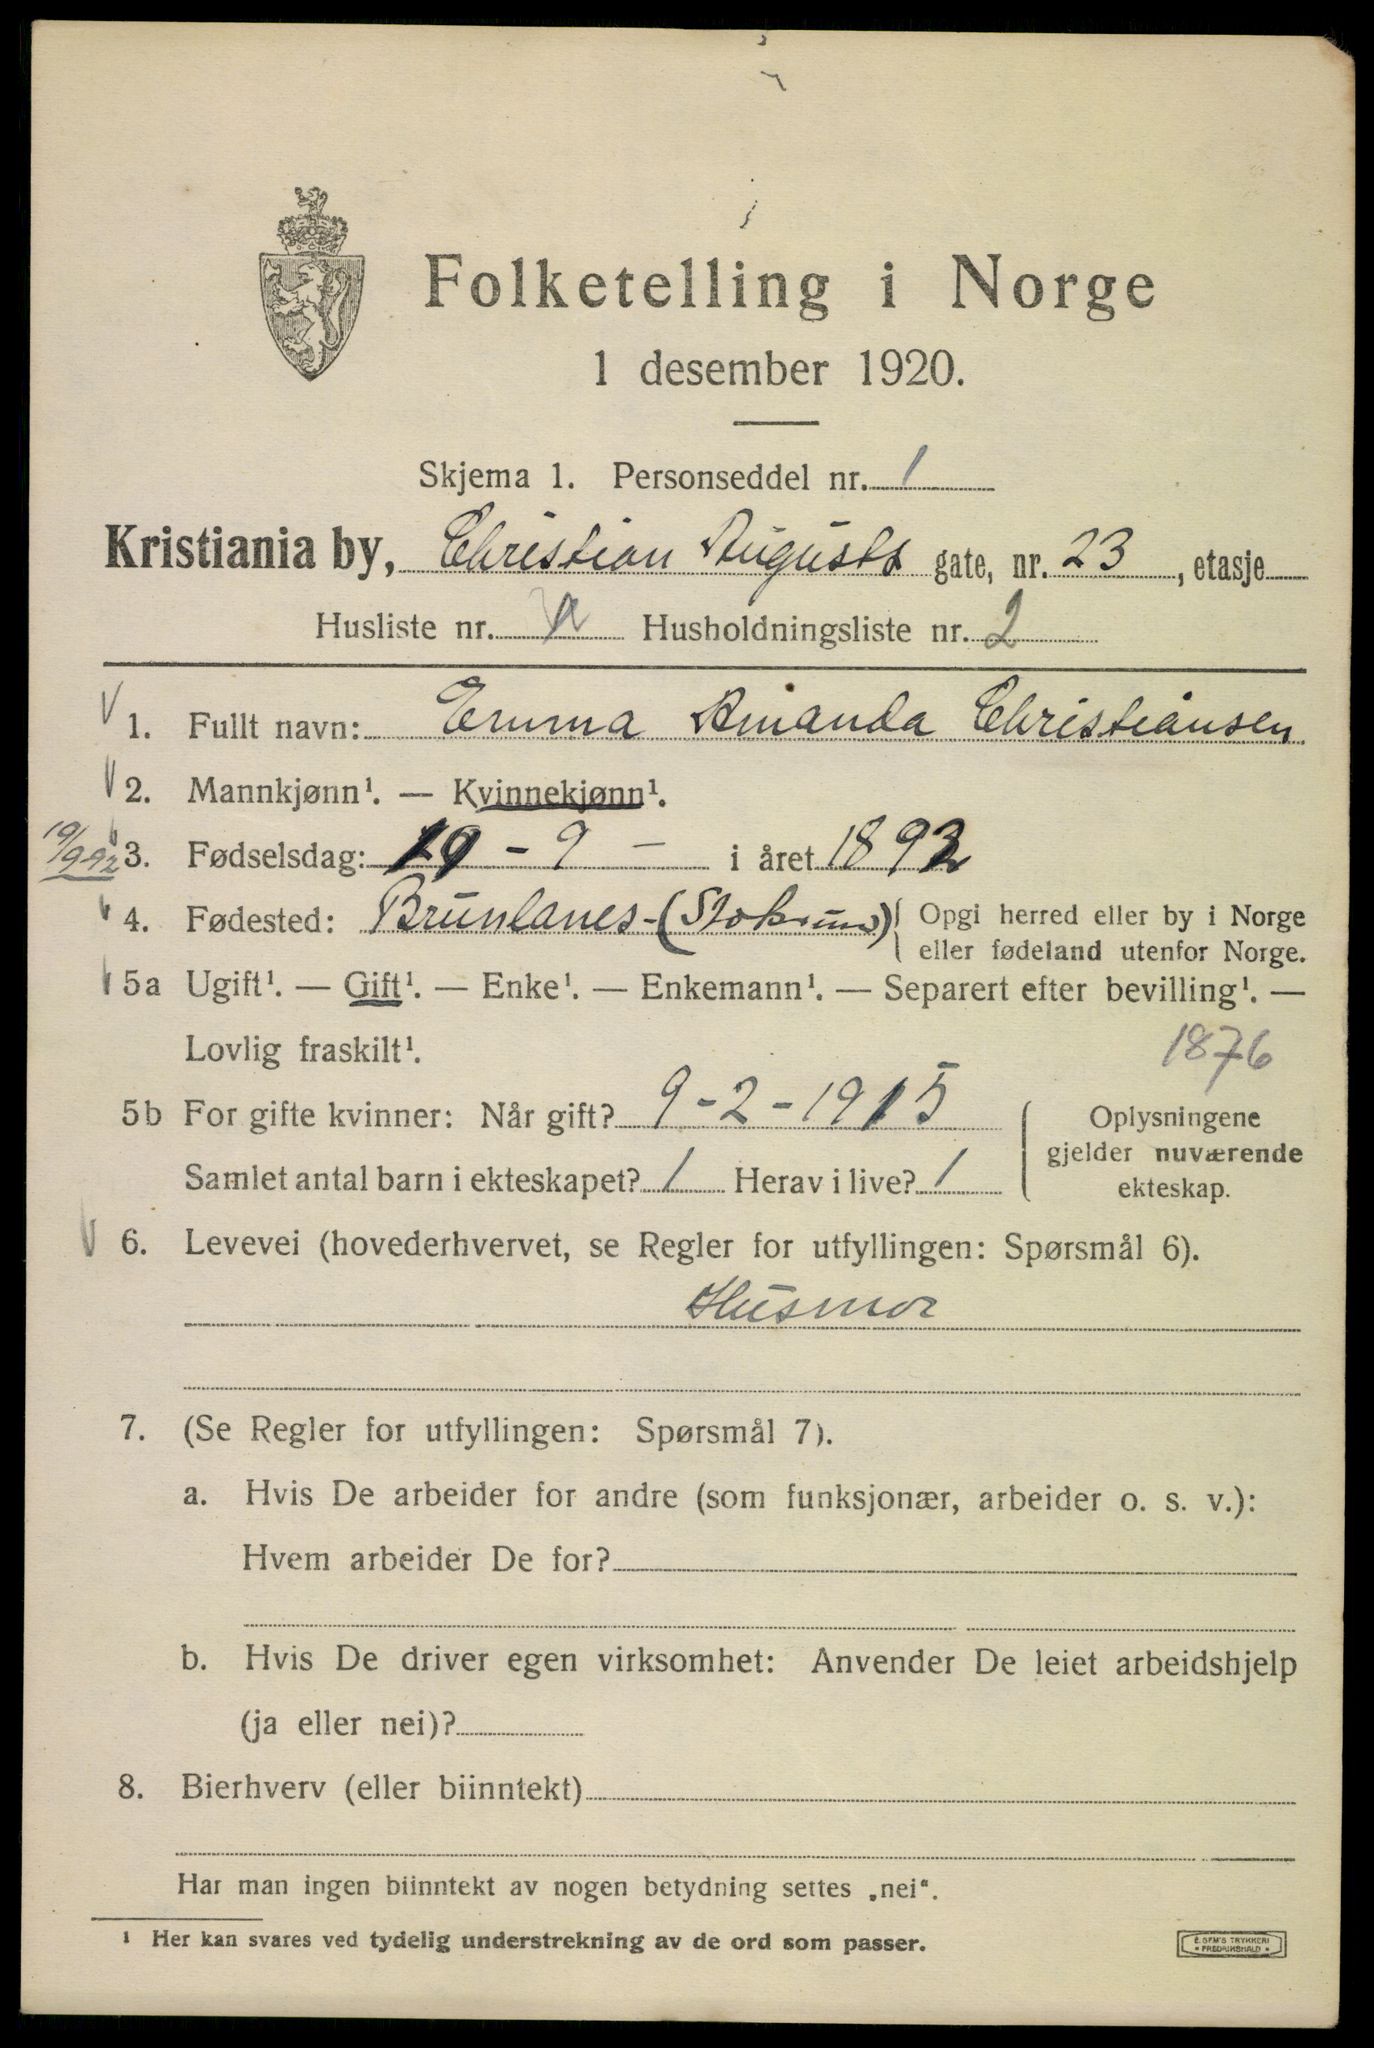 Folketelling i Norge
1 desember 1920.
Skjema 1. Personseddel nr. 1
Kristiania by, Christian Augusts gate, nr. 23, etasje
Husliste nr. Husholdningsliste nr. 2
1. Fullt navn: Emma Amanda Christiansen
2. Mannkjønn¹. — Kvinnekjønn¹.
19/9 92
3. Fødselsdag: 19 - 9 - i året 1892
4. Fødested: Brunlanes - (Stokrum) { Opgi herred eller by i Norge
eller fødeland utenfor Norge.
5a Ugift¹. — Gift¹. — Enke¹. — Enkemann¹. — Separert efter bevilling¹. —
Lovlig fraskilt¹.
1876
5b For gifte kvinner: Når gift? 9 - 2 - 1915
Samlet antal barn i ekteskapet? 1 Herav i live? 1
Oplysningene
gjelder nuværende
ekteskap.
6. Levevei (hovederhvervet, se Regler for utfyllingen: Spørsmål 6).
Husmor
7. (Se Regler for utfyllingen: Spørsmål 7).
a. Hvis De arbeider for andre (som funksjonær, arbeider o. s. v.):
Hvem arbeider De for?
b. Hvis De driver egen virksomhet: Anvender De leiet arbeidshjelp
(ja eller nei)?
8. Bierhverv (eller biinntekt)
Har man ingen biinntekt av nogen betydning settes „nei“.
¹ Her kan svares ved tydelig understrekning av de ord som passer.
E. SEM'S TRYKKERI
FREDRIKSHALD